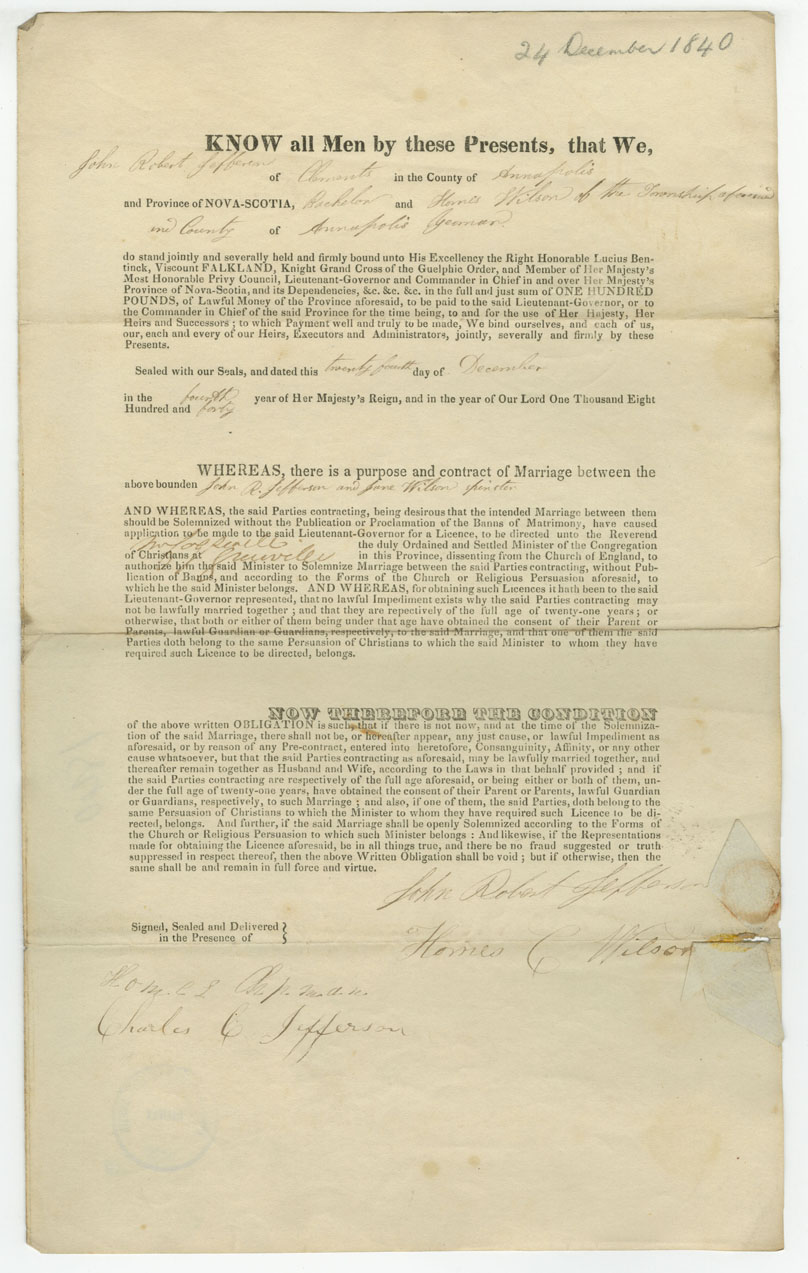 24 December 1840
KNOW all Men by these Presents, that We,
John Robert Jefferson
of Clements in the County of Annapolis
and Province of NOVA-SCOTIA, Bachelor and Homes Wilson of the Township aforesaid
and County of Annapolis Yeoman
do stand jointly and severally held and firmly bound unto His Excellency the Right Honorable Lucius Ben-
tinck, Viscount FALKLAND, Knight Grand Cross of the Guelphic Order, and Member of Her Majesty's
Most Honorable Privy Council, Lieutenant-Governor and Commander in Chief in and over Her Majesty's
Province of Nova-Scotia, and its Dependencies, &c. &c. &c. in the full and just sum of ONE HUNDRED
POUNDS, of Lawful Money of the Province aforesaid, to be paid to the said Lieutenant-Governor, or to
the Commander in Chief of the said Province for the time being, to and for the use of Her Hajesty, Her
Heirs and Successors ; to which Payment well and truly to be made, We bind ourselves, and each of us,
our, each and every of our Heirs, Executors and Administrators, jointly, severally and firmly by these
Presents.
Sealed with our Seals, and dated this twenty fourth day of December
in the fourth year of Her Majesty's Reign, and in the year of Our Lord One Thousand Eight
Hundred and forty
WHEREAS, there is a purpose and contract of Marriage between the
above bounden John R. Jefferson and Jane Wilson spinster
AND WHEREAS, the said Parties contracting, being desirous that the intended Marriage between them
should be Solemnized without the Publication or Proclamation of the Banns of Matrimony, have caused
application to be made to the said Lieutenant-Governor for a Licence, to be directed unto the Reverend
the duly Ordained and Settled Minister of the Congregation
of Christians at in this Province, dissenting from the Church of England, to
authorize him the said Minister to Solemnize Marriage between the said Parties contracting, without Pub-
lication of Banns, and according to the Forms of the Church or Religious Persuasion aforesaid, to
which he the said Minister belongs. AND WHEREAS, for obtaining such Licences it hath been to the said
Lieutenant-Governor represented, that no lawful Impediment exists why the said Parties contracting may
not be lawfully married together ; and that they are repectively of the full age of twenty-one years ; or
otherwise, that both or either of them being under that age have obtained the consent of their Parent or
Parents, lawful Guardian or Guardians, respectively, to the said Marriage, and that one of them the said
Parties doth belong to the same Persuasion of Christians to which the said Minister to whom they have
required such Licence to be directed, belongs.
NOW THEREFORE THE CONDITION
of the above written OBLIGATION is such, that if there is not now, and at the time of the Solemniza-
tion of the said Marriage, there shall not be, or hereafter appear, any just cause, or lawful Impediment as
aforesaid, or by reason of any Pre-contract, entered into heretofore, Consanguinity, Affinity, or any other
cause whatsoever, but that the said Parties contracting as aforesaid, may be lawfully married together, and
thereafter remain together as Husband and Wife, according to the Laws in that behalf provided ; and if
the said Parties contracting are respectively of the full age aforesaid, or being either or both of them, un-
der the full age of twenty-one years, have obtained the consent of their Parent or Parents, lawful Guardian
or Guardians, respectively, to such Marriage ; and also, if one of them, the said Parties, doth belong to the
same Persuasion of Christians to which the Minister to whom they have required such Licence to be di-
rected, belongs. And further, if the said Marriage shall be openly Solemnized according to the Forms of
the Church or Religious Persuasion to which such Minister belongs : And likewise, if the Representations
made for obtaining the Licence aforesaid, be in all things true, and there be no fraud suggested or truth
suppressed in respect thereof, then the above Written Obligation shall be void ; but if otherwise, then the
same shall be and remain in full force and virtue.
John Robert Jefferson
Signed, Sealed and Delivered }
in the Presence of
Homes C Wilson
Charles C Jefferson